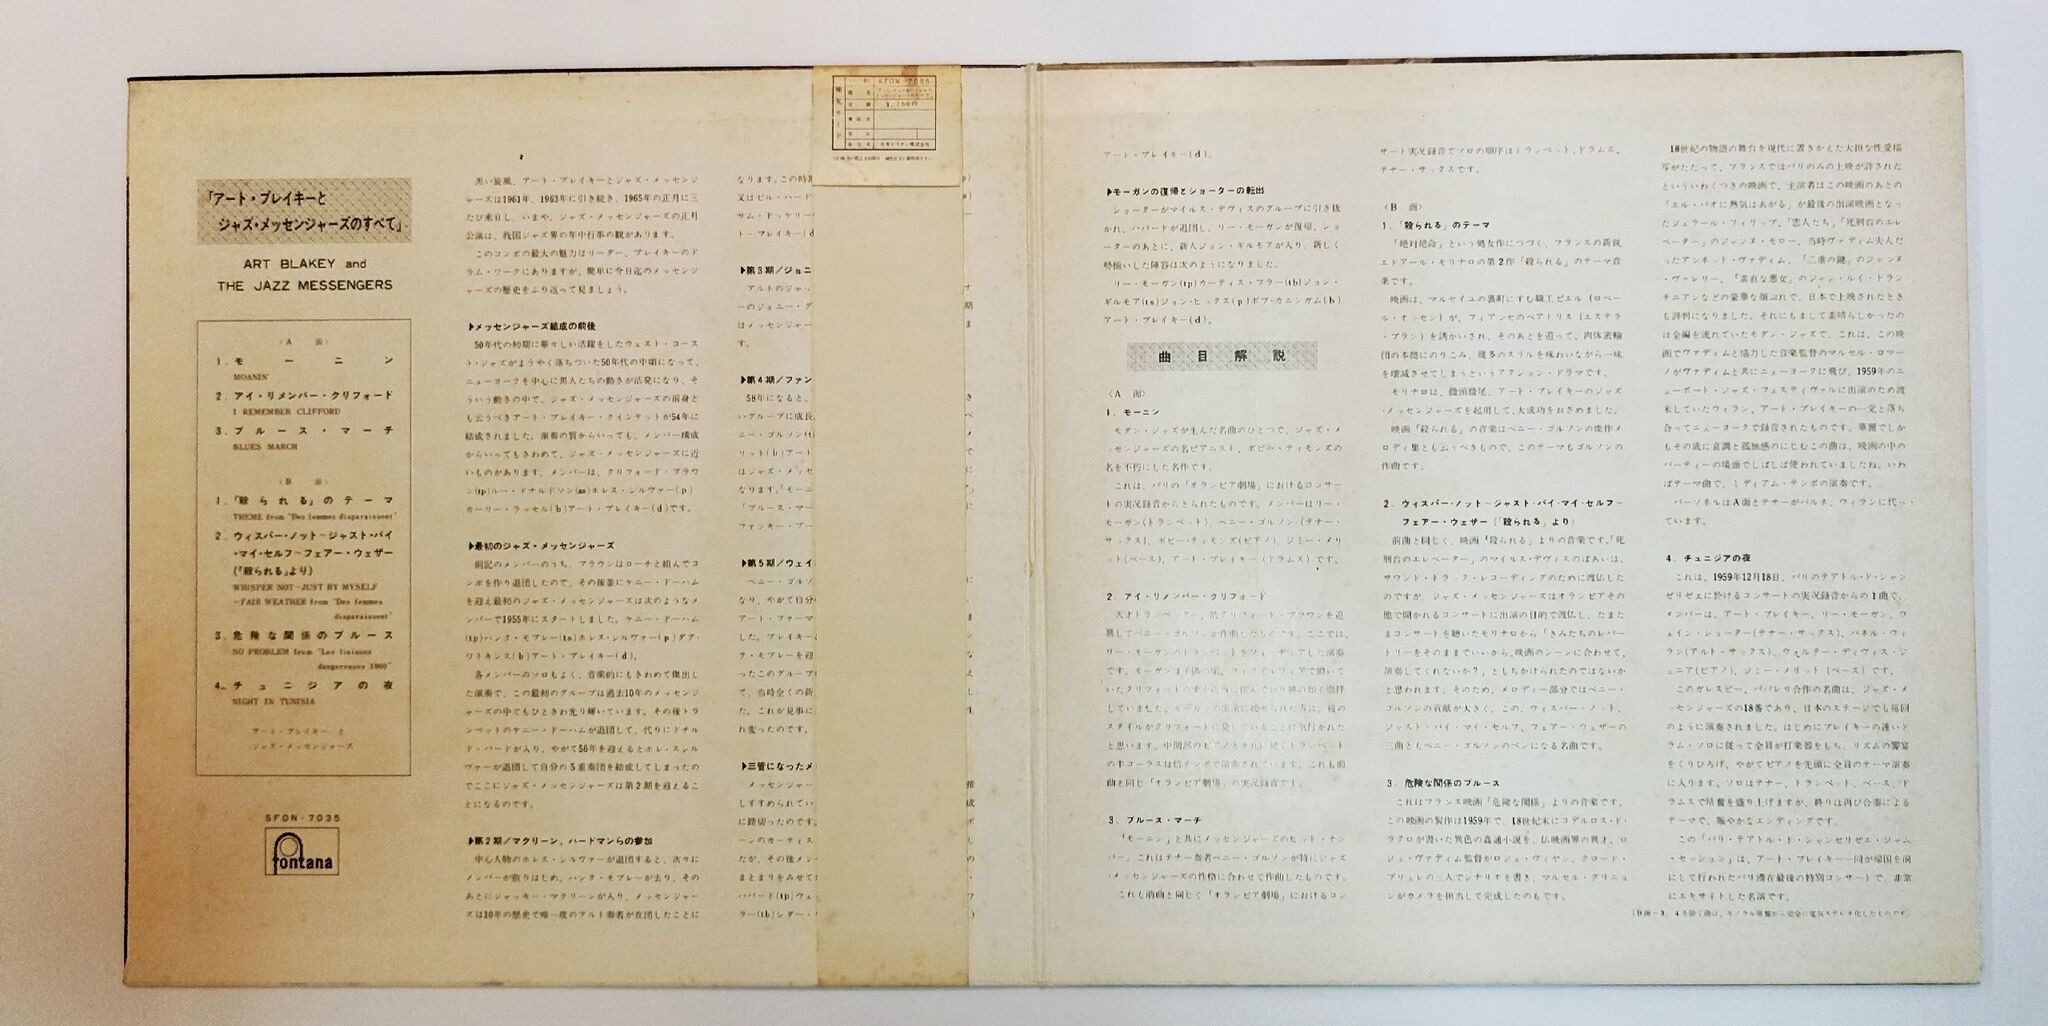 「アート・ブレイキーと
ジャズ・メッセンジャーズのすべて」
ART BLAKEY and
THE JAZZ MESSENGERS
〈A 面〉
1. モーニン
MOANIN'
2. アイ・リメンバー・クリフォード
I REMEMBER CLIFFORD
3. ブルース・マーチ
BLUES MARCH
〈B 面〉
1.「殺られる」のテーマ
THEME from "Des femmes disparaissent"
2. ウィスパー・ノット~ジャスト・バイ
・マイ・セルフ~フェアー・ウェザー
(「殺られる」より)
WHISPER NOT~JUST BY MYSELF
~FAIR WEATHER from "Des femmes
disparaissent"
3. 危険な関係のブルース
NO PROBLEM from "Les liaisons
dangereuses 1960"
4. チュニジアの夜
NIGHT IN TUNISIA
アート・ブレイキーと
ジャズ・メッセンジャーズ
SFON-7035
fontana
黒い旋風、アート・ブレイキーとジャズ・メッセンジ
ャーズは1961年、1963年に引き続き、1965年の正月に三
たび来日し、いまや、ジャズ・メッセンジャーズの正月
公演は、我国ジャズ界の年中行事の観があります。
このコンボの最大の魅力はリーダー、ブレイキーのド
ラム・ワークにありますが、簡単に今日迄のメッセンジ
ャーズの歴史をふり返って見ましょう。
▶メッセンジャーズ結成の前後
50年代の初期に華々しい活躍をしたウェスト・コース
ト・ジャズがようやく落ちついた50年代の中頃になって、
ニューヨークを中心に黒人たちの動きが活発になり、そ
ういう動きの中で、ジャズ・メッセンジャーズの前身と
も云うべきアート・ブレイキー・クインテットが54年に
結成されました。演奏の質からいっても、メンバー構成
からいってもきわめて、ジャズ・メッセンジャーズに近
いものがあります。メンバーは、クリフォード・ブラウ
ン(tp)ルー・ドナルドソン(as)ホレス・シルヴァー(p)
カーリー・ラッセル(b)アート・ブレイキー(d)です。
▶最初のジャズ・メッセンジャーズ
前記のメンバーのうち、ブラウンはローチと組んでコ
ンボを作り退団したので、その後釜にケニー・ドーハム
を迎え最初のジャズ・メッセンジャーズは次のようなメ
ンバーで1955年にスタートしました。ケニー・ドーハム
(tp)ハンク・モブレー(ts)ホレス・シルヴァー(p)ダグ・
ワトキンス(b)アート・ブレイキー(d)。
各メンバーのソロもよく、音楽的にもきわめて傑出し
た演奏で、この最初のグループは過去10年のメッセンジ
ャーズの中でもひときわ光り輝いています。その後トラ
ンペットのケニー・ドーハムが退団して、代りにドナル
ド・バードが入り、やがて56年を迎えるとホレ・スシル
ヴァーが退団して自分の5重奏団を結成してしまったの
でここにジャズ・メッセンジャーズは第2期を迎えるこ
とになるのです。
▶第2期/マクリーン、ハードマンらの参加
中心人物のホレス・シルヴァーが退団すると、次々に
メンバーが散りはじめ、ハンク・モブレーが去り、その
あとにジャッキー・マクリーンが入り、メッセンジャー
ズは10年の歴史で唯一度のアルト奏者が在団したことに
なります。この時期
又はビル・ハード
サム・ドッケリー
ト・ブレイキー(d
▶第3期/ジョニ
アルトのジャッ
ーのジョニー・グ
はメッセンジャー
す。
▶第4期/ファン
58年になると、
いグループに成長
ニー・ゴルソン(t
リット(b)アート
はジャズ・メッセ
なります。「モーニ
「ブルース・マー
ファンキー・ブー
▶第5期/ウェイ
ベニー・ゴルソ
なり、やがて自分
アート・ファーマ
した。ブレイキー
ク・モブレーを迎
ったこのグループ
て、当時全くの新
た。これが見事に
れ変ったのです。
▶三管になったメ
メッセンジャー
しすすめられてい
に踏切ったのです。
ーンのカーティス
たが、その後メン
まとまりをみせて
ハバード(tp)ウェ
ラー(tb)シダー・
SFON 7035
1,750円
日本ビクター株式会社
アート・ブレイキー(d)。
▶モーガンの復帰とショーターの転出
ショーターがマイルス・デヴィスのグループに引き抜
かれ、ハバードが退団し、リー・モーガンが復帰、ショ
ーターのあとに、新人ジョン・ギルモアが入り、新しく
勢揃いした陣容は次のようになりました。
リー・モーガン(tp)カーティス・フラー(tb)ジョン・
ギルモア(ts)ジョン・ヒックス(p)ボブ・カニンガム(b)
アート・ブレイキー(d)。
曲目解説
〈A 面〉
1. モーニン
モダン・ジャズが生んだ名曲のひとつで、ジャズ・メ
ッセンジャーズの名ピアニスト、ボビー・ティモンズの
名を不朽にした名作です。
これは、パリの「オランピア劇場」におけるコンサー
トの実況録音からとられたものです。メンバーはリー・
モーガン(トランペット)、ベニー・ゴルソン(テナー・
サックス)、ボビー・ティモンズ(ピアノ)、ジミー・メリ
ット(ベース)、アート・ブレイキー(ドラムス)です。
2. アイ・リメンバー・クリフォード
天才トランペッター、故クリフォード・ブラウンを追
慕してベニー・ゴルソンが作曲したものです。ここでは、
リー・モーガンのトランペットをフィーチュアした演奏
です。モーガンは子供の頃、フィラデルフィアで聴いて
いたクリフォードのすぐ近所に住んでおり神の如く崇拝
していました。モーガンの実演に接せられた方は、彼の
スタイルがクリフォードに発していることに気付かれた
と思います。中間部のピアノとそれに続くトランペット
の半コーラスは倍テンポで演奏されています。これも前
曲と同じ「オランピア劇場」の実況録音です。
3. ブルース・マーチ
「モーニン」と共にメッセンジャーズのヒット・ナン
バー。これはテナー奏者ベニー・ゴルソンが特にジャズ
・メッセンジャーズの性格に合わせて作曲したものです。
これも前曲と同じく「オランピア劇場」におけるコン
サート実況録音でソロの順序はトランペット、ドラムス、
テナー・サックスです。
〈B 面〉
1.「殺られる」のテーマ
「絶対絶命」という処女作につづく、フランスの新鋭
エドアール・モリナロの第2作「殺られる」のテーマ音
楽です。
映画は、マルセイユの裏町にすむ職工ピエル(ロベー
ル・オッセン)が、フィアンセのベアトリス(エステラ
・ブラン)を誘かいされ、そのあとを追って、肉体密輸
団の本拠にのりこみ、幾多のスリルを味わいながら一味
を壊滅させてしまうというアクション・ドラマです。
モリナロは、徹頭徹尾、アート・ブレイキーのジャズ
・メッセンジャーズを起用して、大成功をおさめました。
映画「殺られる」の音楽はベニー・ゴルソンの傑作メ
ロディ集とも云うべきもので、このテーマもゴルソンの
作曲です。
2. ウィスパー・ノット~ジャスト・バイ・マイ・セルフ~
フェアー・ウェザー(「殺られる」より)
前曲と同じく、映画「殺られる」よりの音楽です。「死
刑台のエレベーター」のマイルス・デヴィスのばあいは、
サウンド・トラック・レコーディングのために渡仏した
のですが、ジャズ・メッセンジャーズはオランピアその
他で開かれるコンサートに出演の目的で渡仏し、たまた
まコンサートを聴いたモリナロから「きみたちのレパー
トリーをそのままでいいから、映画のシーンに合わせて、
演奏してくれないか?」ともちかけられたのではないか
と思われます。そのため、メロディー部分ではベニー・
ゴルソンの貢献が大きく、この、ウィスパー・ノット、
ジャスト・バイ・マイ・セルフ、フェアー・ウェザーの
三曲ともベニー・ゴルソンのペンになる名曲です。
3. 危険な関係のブルース
これはフランス映画「危険な関係」よりの音楽です。
この映画の製作は1959年で、18世紀末にコデルロス・ド・
ラクロが書いた異色の姦通小説を、仏映画界の異才、ロ
ジェ・ヴァディム監督がロジェ・ヴィヤン、クロード・
ブリュレの三人でシナリオを書き、マルセル・グリニョ
ンがカメラを担当して完成したのもです。
18世紀の物語の舞台を現代に置きかえた大胆な性愛描
写がたたって、フランスではパリのみの上映が許された
といういわくつきの映画で、主演者はこの映画のあとの
「エル・パオに熱気はあがる」が最後の出演映画となっ
たジェラール・フィリップ、「恋人たち」「死刑台のエレ
ベーター」のジャンヌ・モロー、当時ヴァディム夫人だ
ったアンネット・ヴァディム、「二重の鍵」のジャンヌ
・ヴァレリー、「素直な悪女」のジャン・ルイ・トラン
チニアンなどの豪華な顔ぶれで、日本で上映されたとき
も評判になりました。それにもまして素晴らしかったの
は全編を流れていたモダン・ジャズで、これは、この映
画でヴァディムと協力した音楽監督のマルセル・ロマー
ノがヴァディムと共にニューヨークに飛び、1959年のニ
ューポート・ジャズ・フェスティヴァルに出演のため渡
米していたウィラン、アート・ブレイキーの一党と落ち
合ってニューヨークで録音されたものです。華麗でしか
もその底に哀調と孤独感のにじむこの曲は、映画の中の
パーティーの場面でしばしば使われていましたね。いわ
ばテーマ曲で、ミディアム・テンポの演奏です。
パーソネルはA面とテナーがバルネ、ウィランに代っ
ています。
4. チュニジアの夜
これは、1959年12月18日、パリのテアトル・ド・シャン
ゼリゼエに於けるコンサートの実況録音からの1曲で、
メンバーは、アート・ブレイキー、リー・モーガン、ウ
ェイン・ショーター(テナー・サックス)、バネル・ウィ
ラン(アルト・サックス)、ウォルター・ディヴィス・ジ
ュニア(ピアノ)、ジミー・メリット(ベース)です。
このガレスピー、パパレリ合作の名曲は、ジャズ・メ
ッセンジャーズの18番であり、日本のステージでも毎回
のように演奏されました。はじめにブレイキーの速いド
ラム・ソロに従って全員が打楽器をもち、リズムの饗宴
をくりひろげ、やがてピアノを先頭に全員のテーマ演奏
に入ります。ソロはテナー、トランペット、ベース、ド
ラムスで昂奮を盛り上げますが、終りは再び合奏による
テーマで、賑やかなエンディングです。
この「パリ・テアトル・ド・シャンゼリゼエ・ジャム
・セッション」は、アート・ブレイキー一同が帰国を前
にして行われたパリ滞在最後の特別コンサートで、非常
にエキサイトした名演です。
(B面-3.4を除く曲は、モノラル原盤から完全に電気ステレオ化したものです)